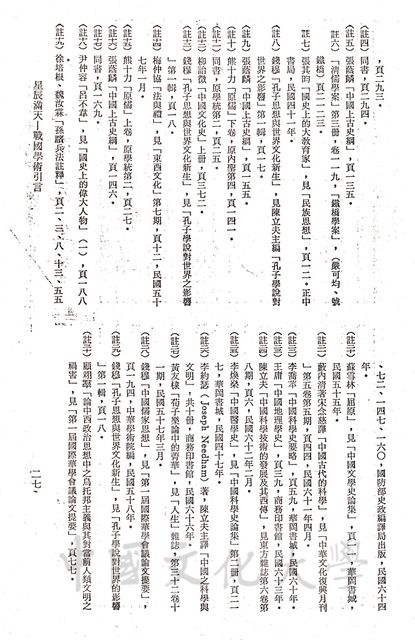 ，頁二九三。
(註四) 同書，頁二九四。
(註五) 張蔭麟「中國上古史綱」，頁一三五。
(註六) 「清儒學案」第三册，卷一一九，「鐵橋學案」，（嚴可均、號
鐵橋）頁二一二三。
(註七) 張其昀「國史上的大教育家」，見「民族思想」，頁一二。正中
書局，民國四十一年。
(註八) 錢穆「孔子思想與世界文化新生」，見陳立夫主編「孔子學說對
世界之影響」第一輯，頁一七。
(註九) 張蔭麟「中國上古史綱」，頁一五五。
(註十) 熊十力「原儒」下卷，原內聖第四，頁一四一。
(註十一) 同書，原學統第二，頁二五。
(註十二) 柳詒徵「中國文化史」上册，頁三七二。
(註十三) 錢穆「孔子思想與世界文化新生」，見「孔子學說對世界之影響
」第一輯，頁一八。
(註十四) 梅仲協「法與禮」，見「東西文化」第七期，頁十二，民國五十
七年一月。
(註十五) 熊十力「原儒」上卷，原學統第二，頁二七。
(註十六) 張蔭麟「中國上古史綱」，頁一四六。
(註十七) 同書，頁一六九。
(註十八) 尹仲容「呂不韋」，見「國史上的偉大人物」（一），頁一八八
(註十九) 徐培根、魏汝霖「孫臏兵法註釋」，頁二、三、八、十三、五五
、七二、一四七、一六〇，國防部史政編譯局出版，民國六十四
年。
(註二十) 蘇雪林「屈原」，見「中國文學史論集」（一），頁一，華岡書城，
民國五十五年。
(註二一) 藪內清著宋念慈譯「中國古代的科學」，見「中華文化復興月刊
」第五卷第五期，頁四四，民國六十一年四月。
(註二二) 李喬苹「中國科學史要略」，頁五九，華岡書城，民國六十年。
(註二三) 王庸「中國地理學史」，頁三九，商務印書館，民國六十三年。
(註二四) 陳立夫「中國科學技術的發展及其西傳」，見東方雜誌第六卷第
八期，頁六，民國六十二年二月。
(註二五) 李煥燊「中國醫學史」，見「中國科學史論集」第二册，頁二一
七，華岡書城，民國四十七年。
(註二六) 李約瑟（Joseph Needham）著，陳立夫主譯「中國之科學與
文明」，共十册，商務印書館，民國六十六年。
(註二七) 黃友棣「荀子樂論中的菁華」，見「人生」雜誌，第三十二卷十
一期，民國五十七年三月。
(註二八) 錢穆「中國儒家思想」，見「第一屆國際華學會議論文提要」，
頁一九四，中華學術院編，民國五十八年。
(註二九) 錢穆「孔子思想與世界文化新生」，見「孔子學說對世界的影響
」第一輯，頁一八。
(註三十) 顧翊羣「論中西政治思想中之烏托邦主義與其對當前人類文明之
禍害」，見「第一屆國際華學會議論文提要」，頁七七。
星辰滿天—戰國學術引言
二一七
中國文化大學